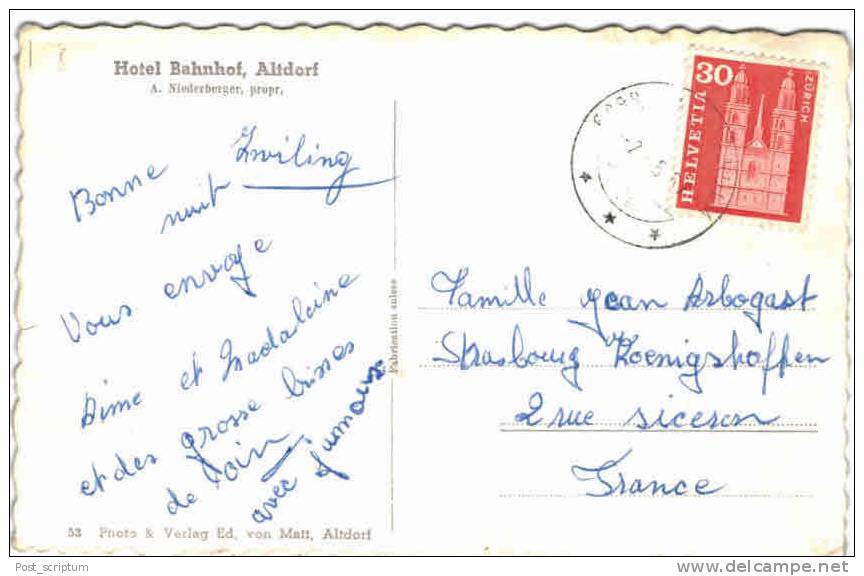 Hotel Bahnhof, Altdorf
A. Niederberger, propr.
Bonne Zwiling
nuit
Vous envoye
Aime et Madaleine
et des grosse bisses
de loin
avec
Fabrication suisse
53 Photo & Verlag Ed. von Matt, Altdorf
30
HELVETIA
ZÜRICH
Famille Jean Arbogast
Strasbourg Koenigshoffen
2 rue siceron
France
Post_scriptum
delcampe.net